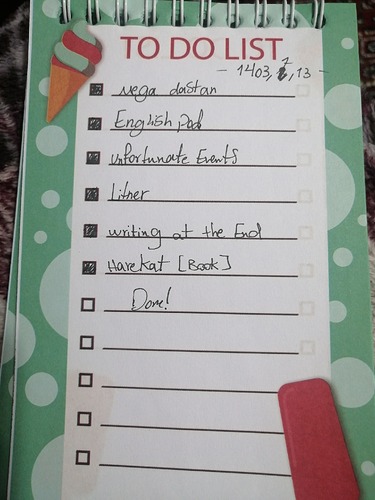 TO DO LIST
- 1403, 7, 13 -
Nega dastan
English pod
Unfortunate Events
Litner
writing at the End
Harekat [Book]
Done!